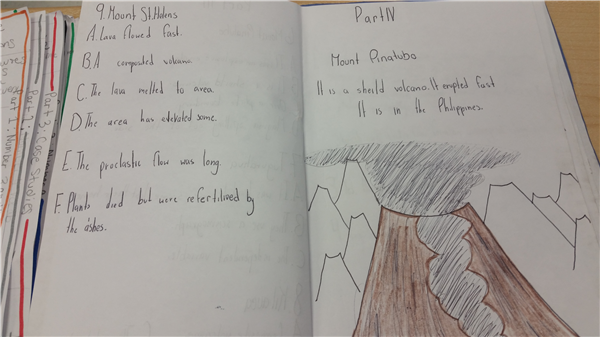 9. Mount St. Helens
A. Lava flowed fast.
B. A compounded volcano.
C. The lava melted to area.
D. The area has elevated some.
E. The proclastic flow was long.
F. Plants died but were refertilised by
the ashes.
Part IV
Mount Pinatubo
It is a sheild volcano. It erupted fast
It is in the Philippines.
Part 3: Case Studies
Part 2:
Part 1: Number